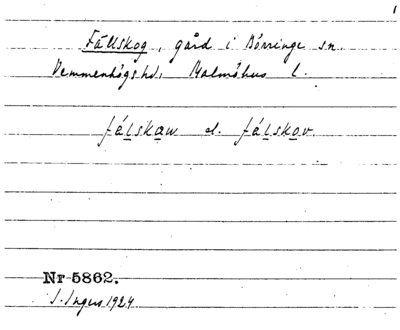 Fållskog, gård i Börringe sn.
Vemmenhögs hd, Malmöhus l.
fálskaw el. fálskov.
Nr 5862.
I. Ingers 1924